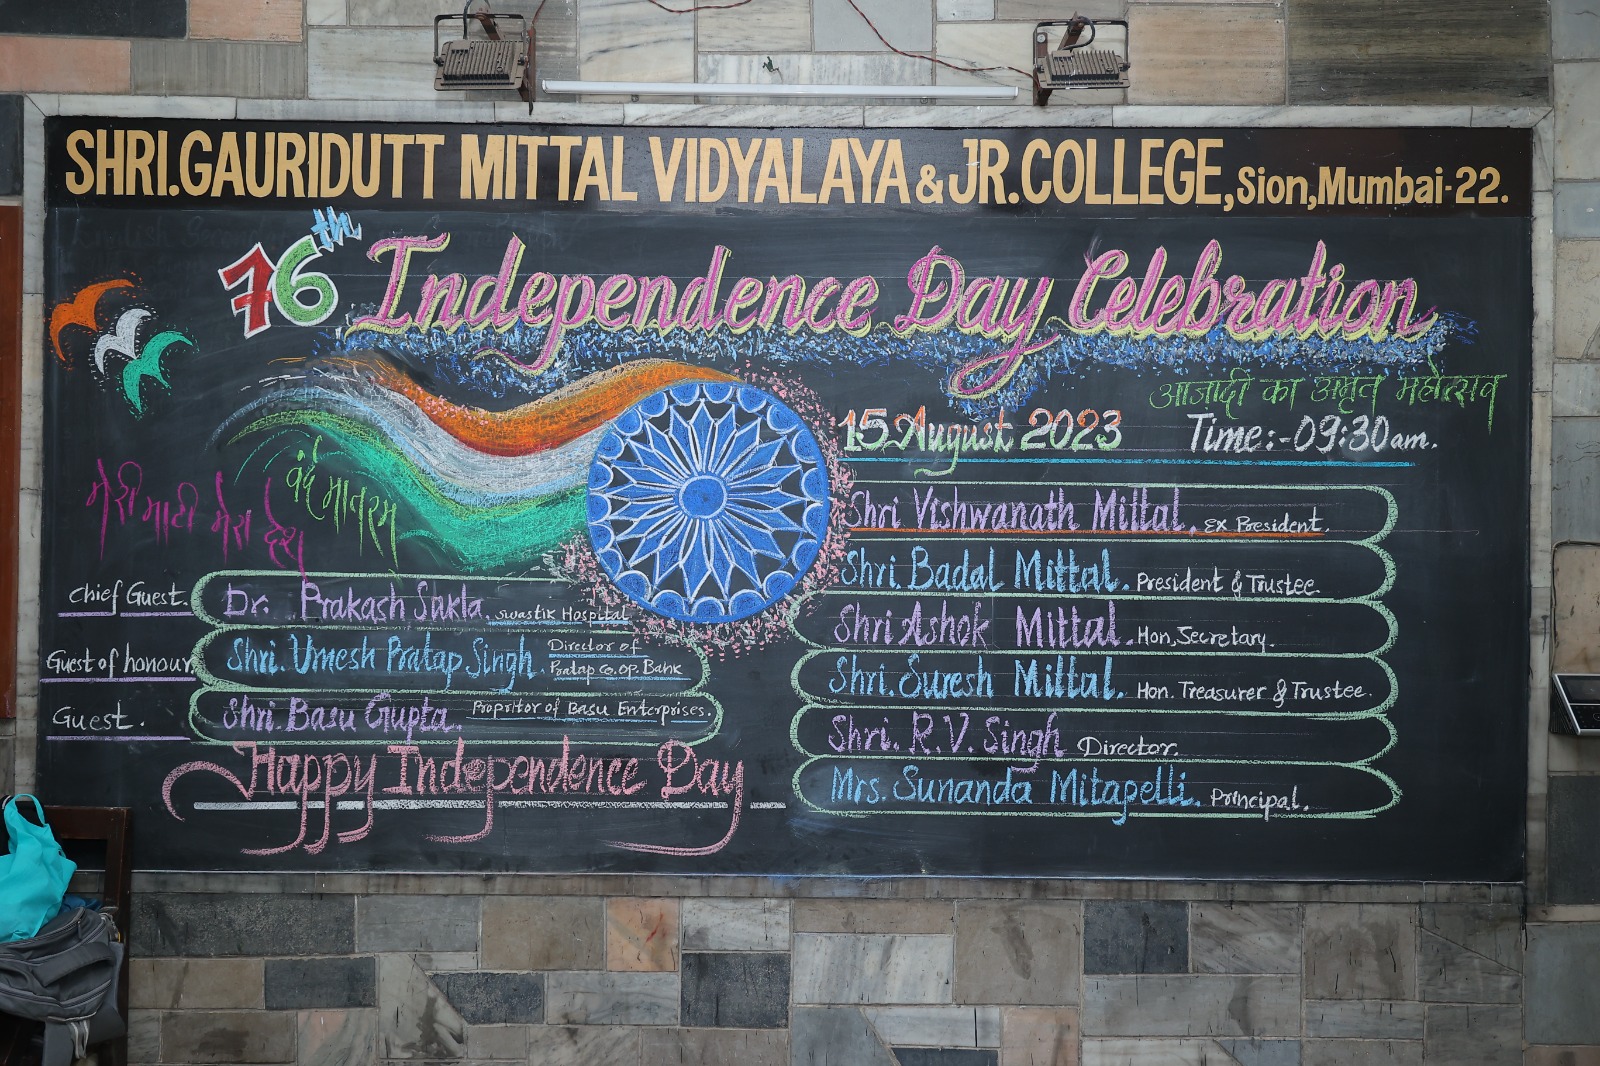 SHRI.GAURIDUTT MITTAL VIDYALAYA & JR.COLLEGE, Sion, Mumbai-22.
76th Independence Day Celebration
आजादी का अमृत महोत्सव
15 August 2023 Time:-09:30am.
वंदे मातरम
मेरी माटी मेरा देश
Chief Guest. Dr. Prakash Sukla. Swastik Hospital
Guest of honour Shri. Umesh Pratap Singh. Director of
Pratap Co.op. Bank
Guest. Shri. Basu Gupta. Propritor of Basu Enterprises.
Happy Independence Day
Shri Vishwanath Mittal. Ex President.
Shri. Badal Mittal. President & Trustee.
Shri Ashok Mittal. Hon, Secretary.
Shri. Suresh Mittal. Hon. Treasurer & Trustee.
Shri. R.V. Singh Director.
Mrs. Sunanda Mitapelli. Principal.